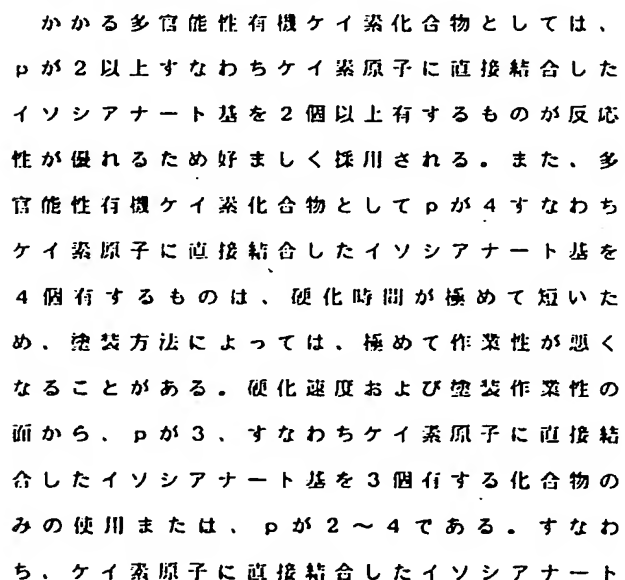 かかる多官能性有機ケイ素化合物としては、
pが2以上すなわちケイ素原子に直接結合した
イソシアナート基を2個以上有するものが反応
性が優れるため好ましく採用される。また、多
官能性有機ケイ素化合物としてpが4すなわち
ケイ素原子に直接結合したイソシアナート基を
4個有するものは、硬化時間が極めて短いた
め、塗装方法によっては、極めて作業性が悪く
なることがある。硬化速度および塗装作業性の
面から、pが3、すなわちケイ素原子に直接結
合したイソシアナート基を3個有する化合物の
みの使用または、pが2〜4である。すなわ
ち、ケイ素原子に直接結合したイソシアナート